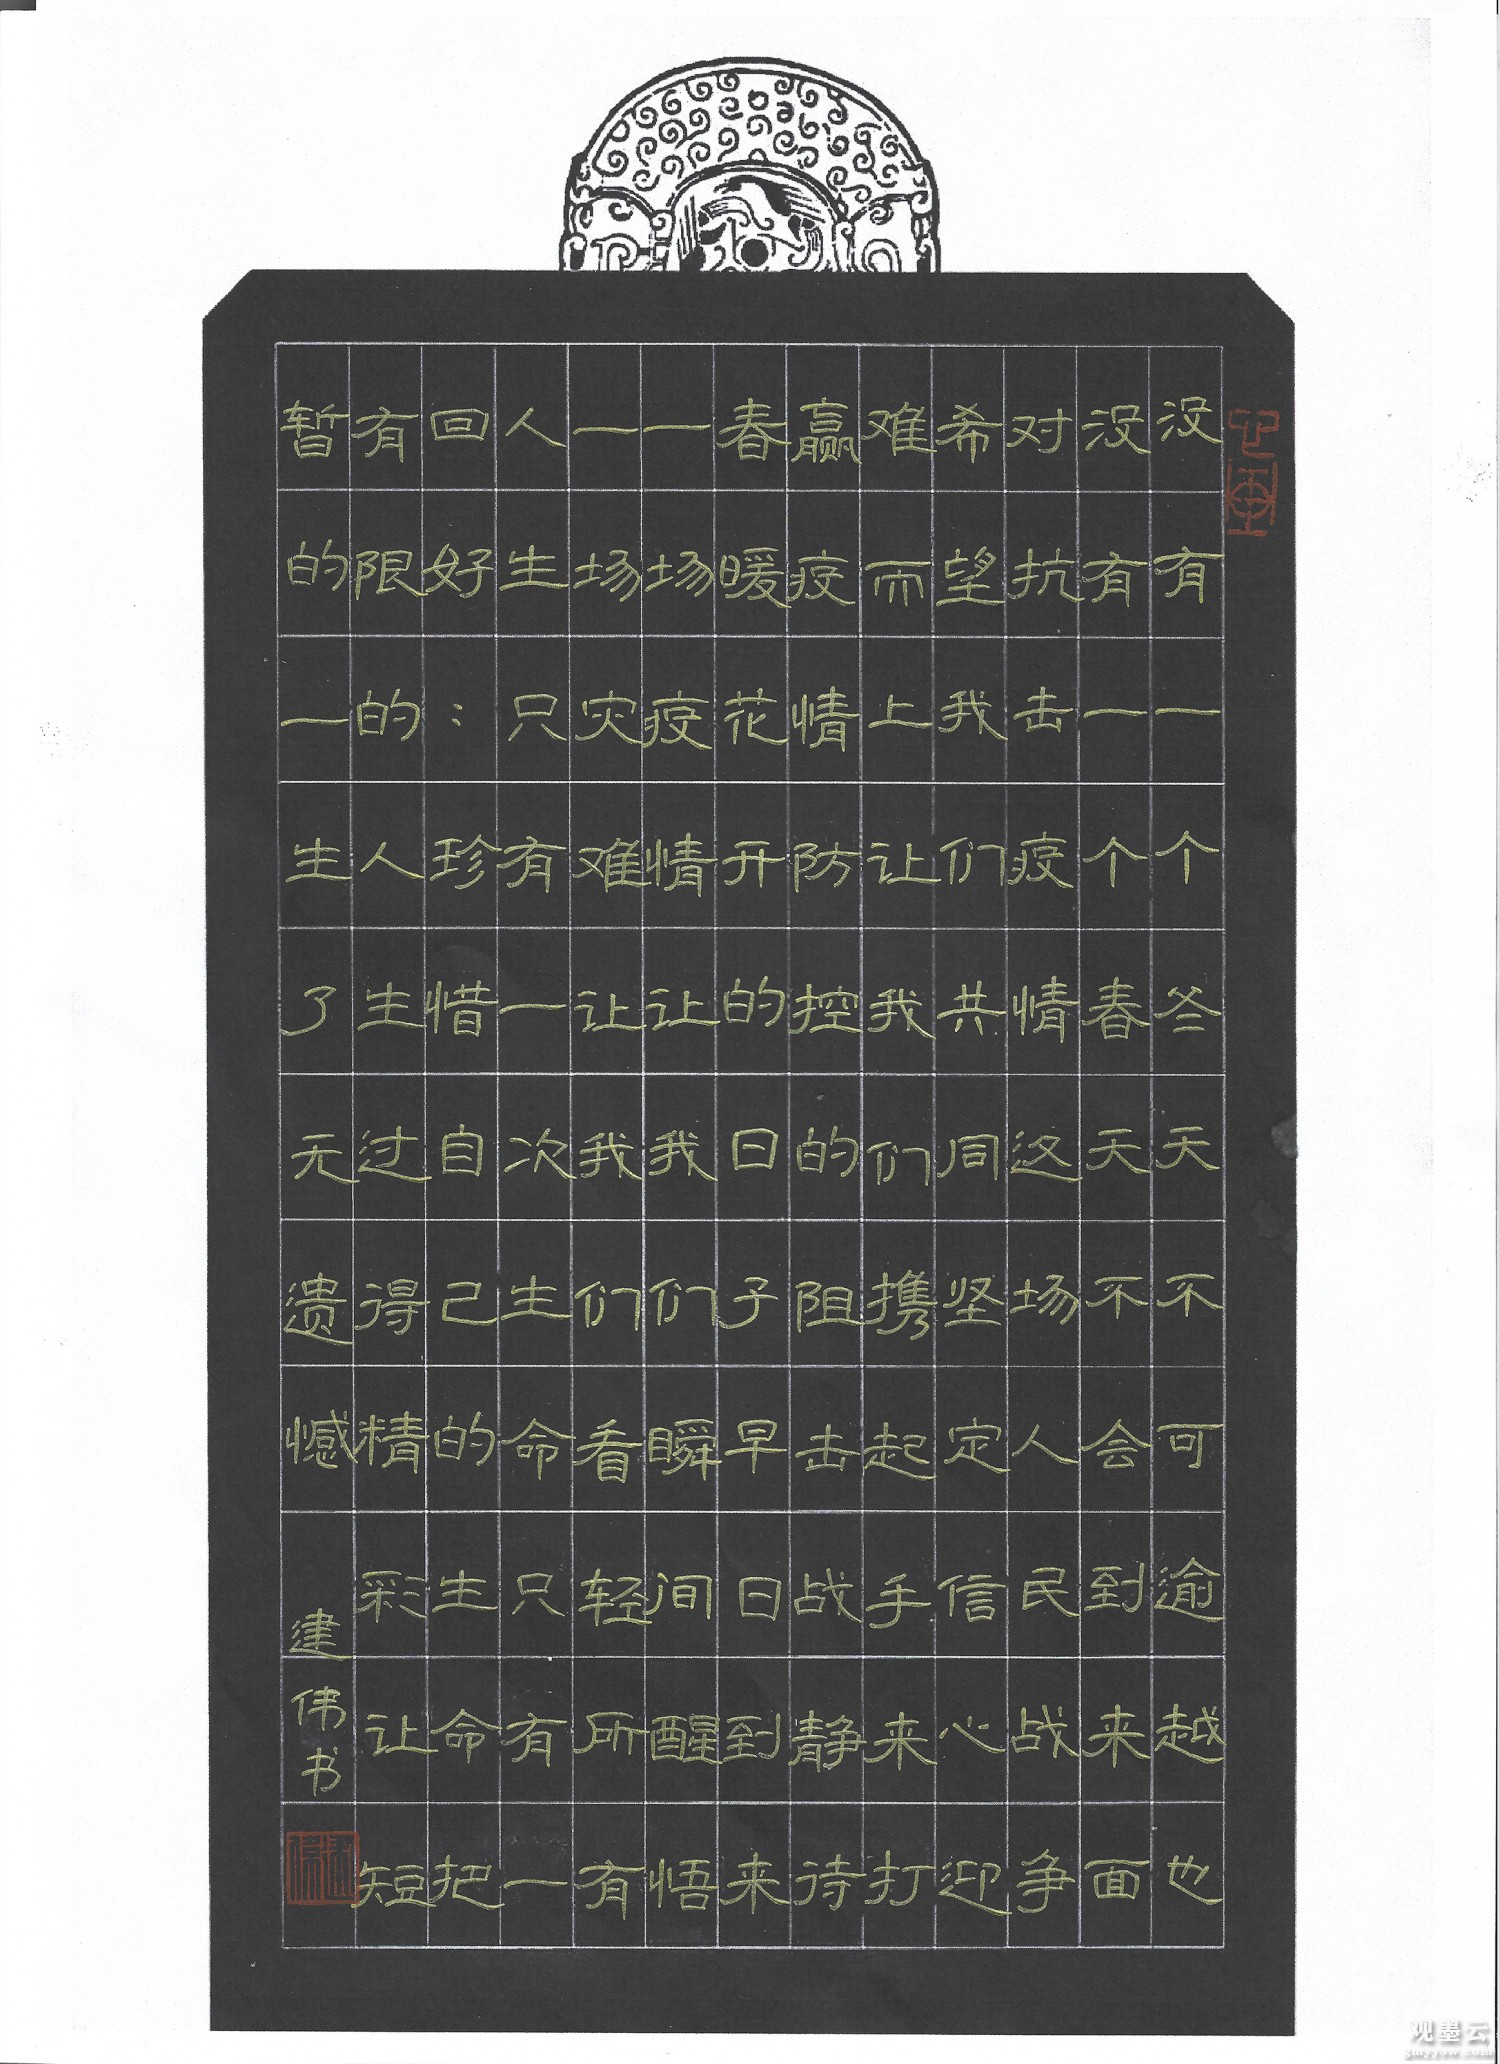 没有一个冬天不可逾越也
没有一个春天不会到来面
对抗击疫情这场人民战争
希望我们共同坚定信心迎
难而上让我们携起手来打
赢疫情防控的阻击战静待
春暖花开的日子早日到来
一场疫情让我们瞬间醒悟
一场灾难让我们看轻所有
人生只有一次生命只有一
回好：珍惜自己的生命把
有限的人生过得精彩让短
暂的一生了无遗憾
建伟书
观墨云